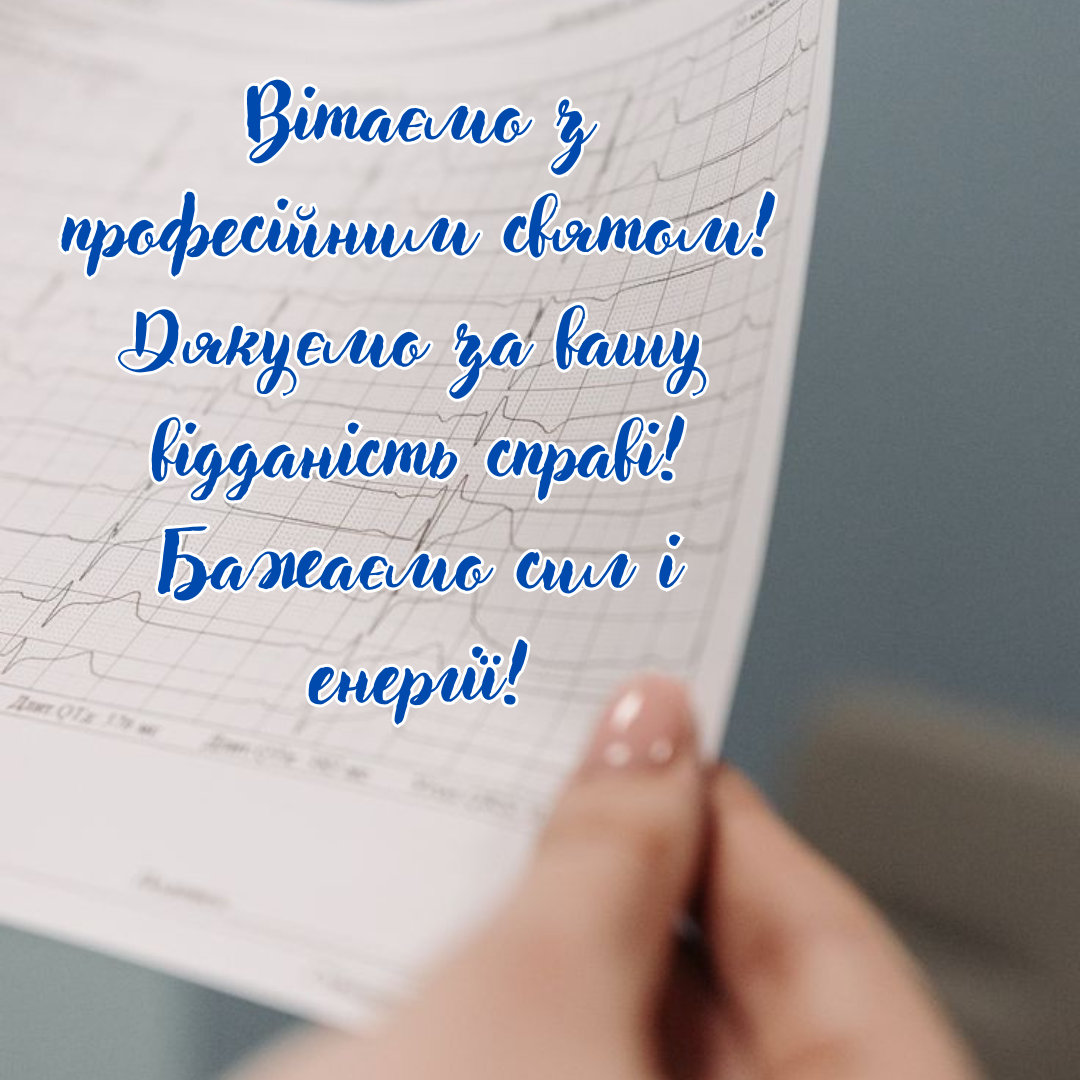 Вітаємо з
професійним святом!
Дякуємо за вашу
відданість справі!
Бажаємо сил і
енергії!